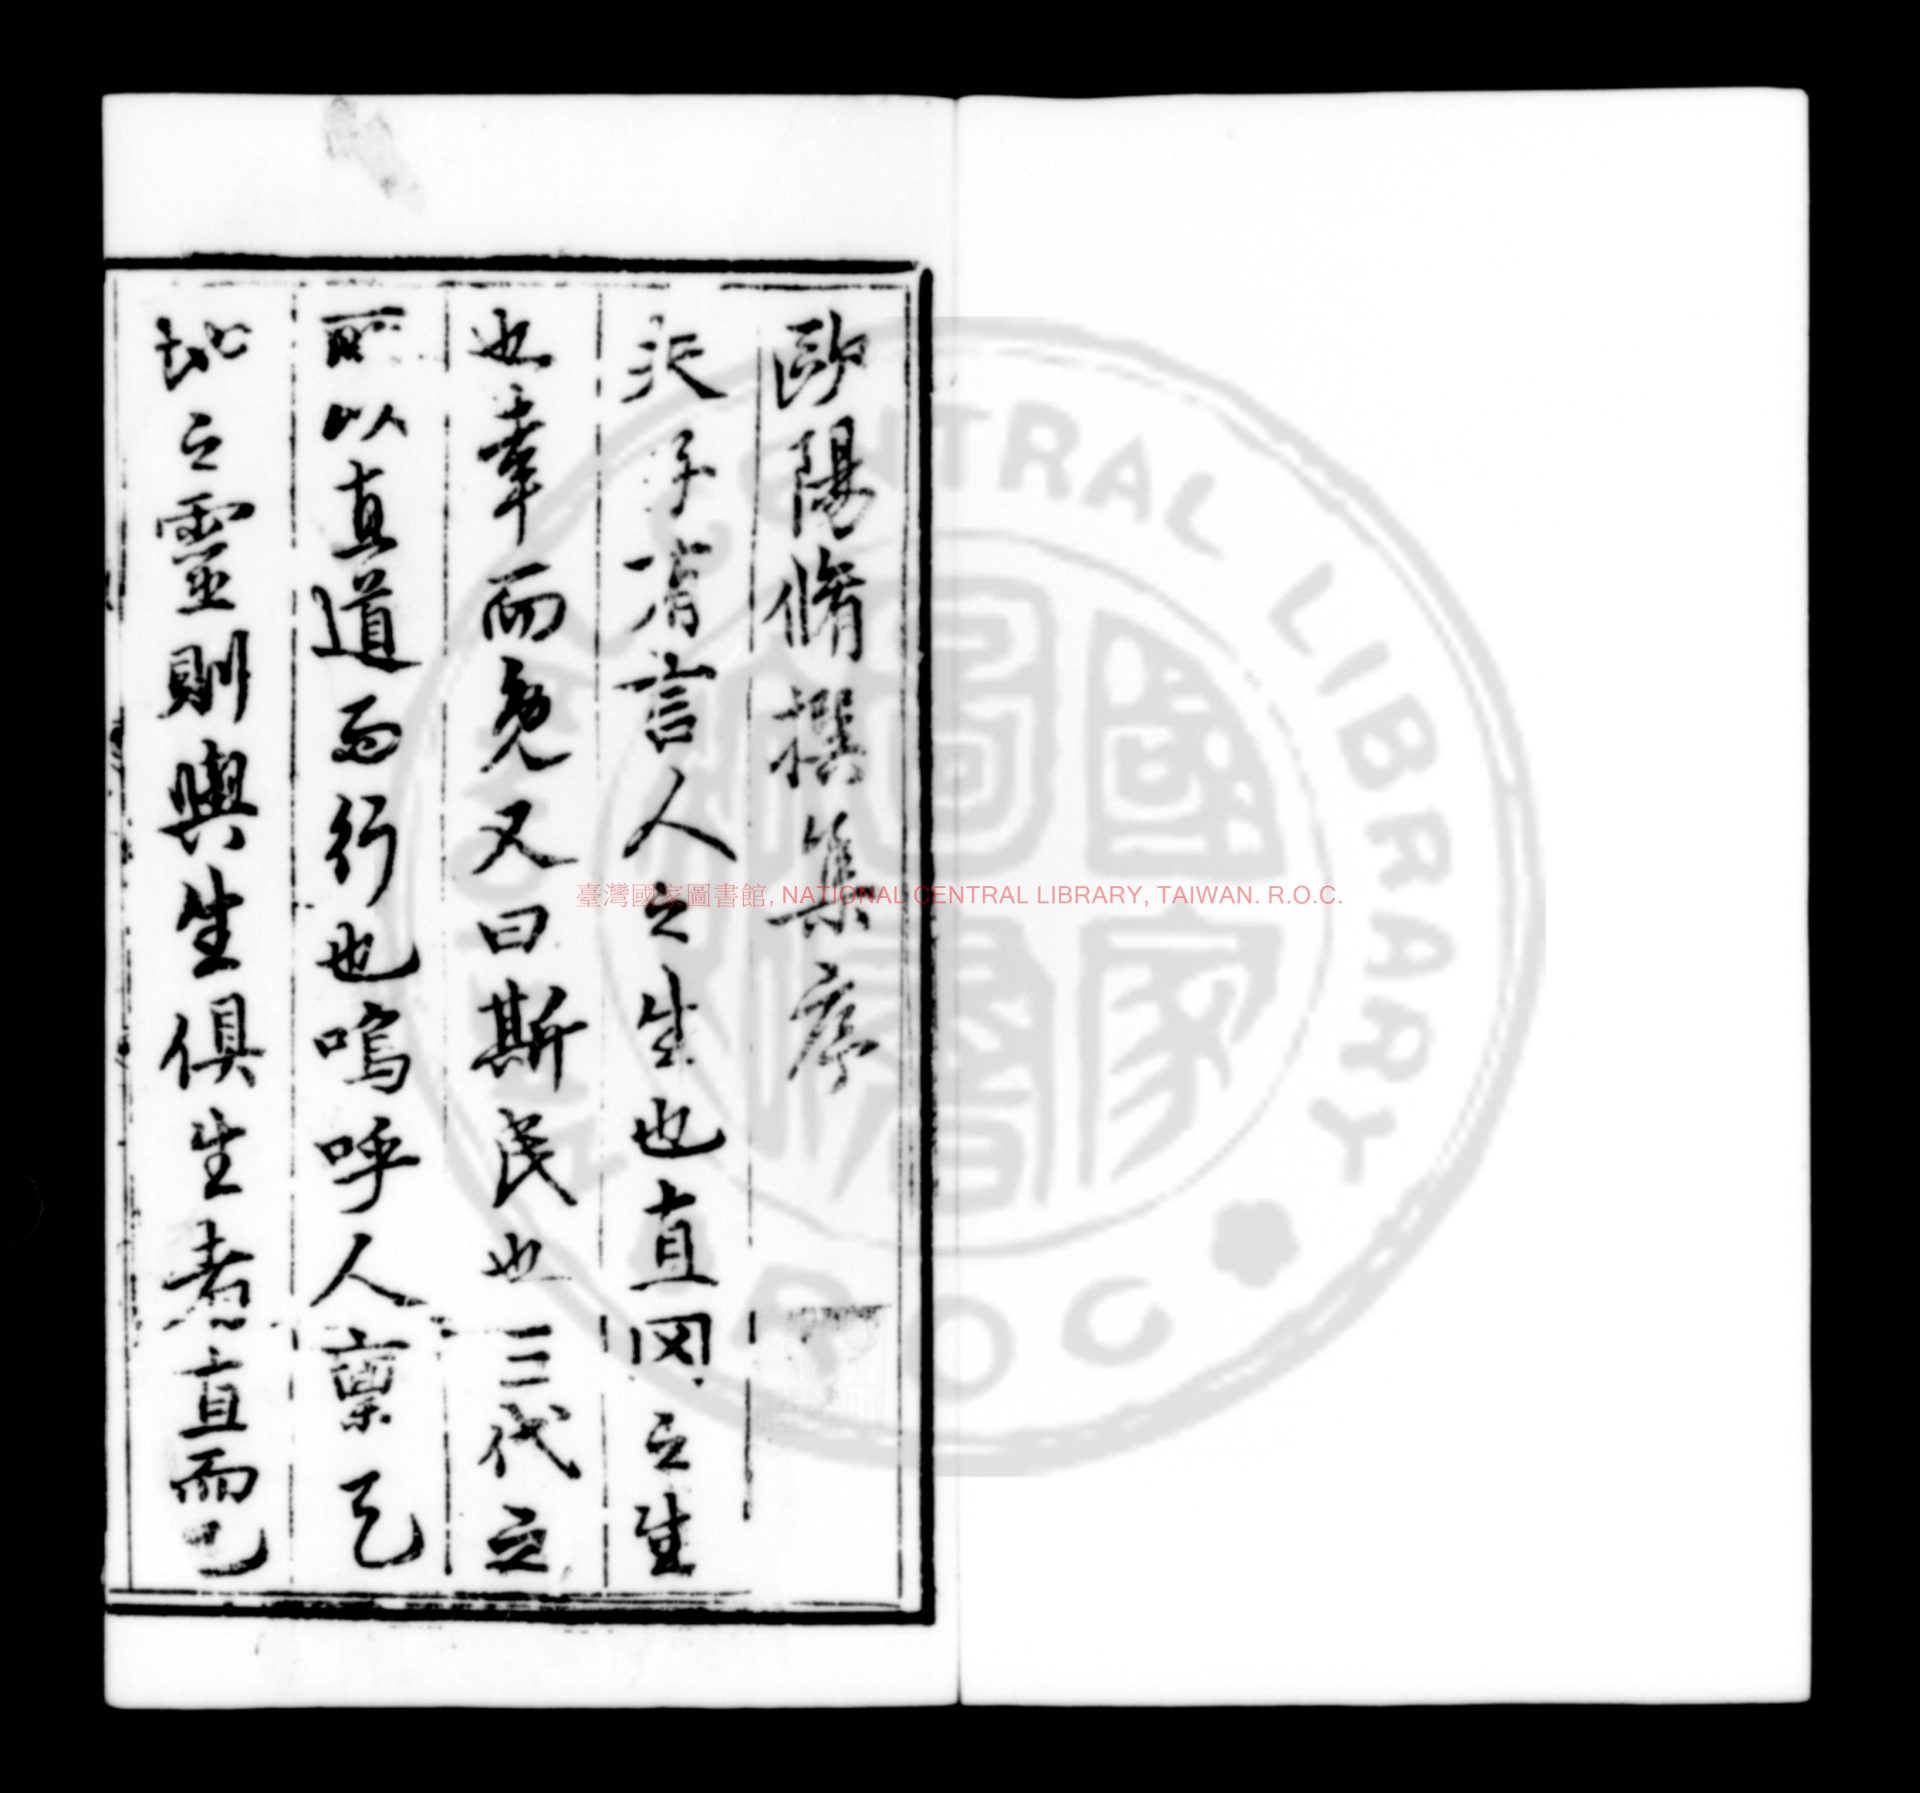 歐陽脩撰集序
夫子有言人之生也直罔之生
也幸而免又曰斯民也三代之
所以直道而行也嗚呼人稟天
地之靈則與生俱生者直而已
臺灣國家圖書館, NATIONAL CENTRAL LIBRARY, TAIWAN. R.O.C.
CENTRAL LIBRARY
ROC
國家圖書